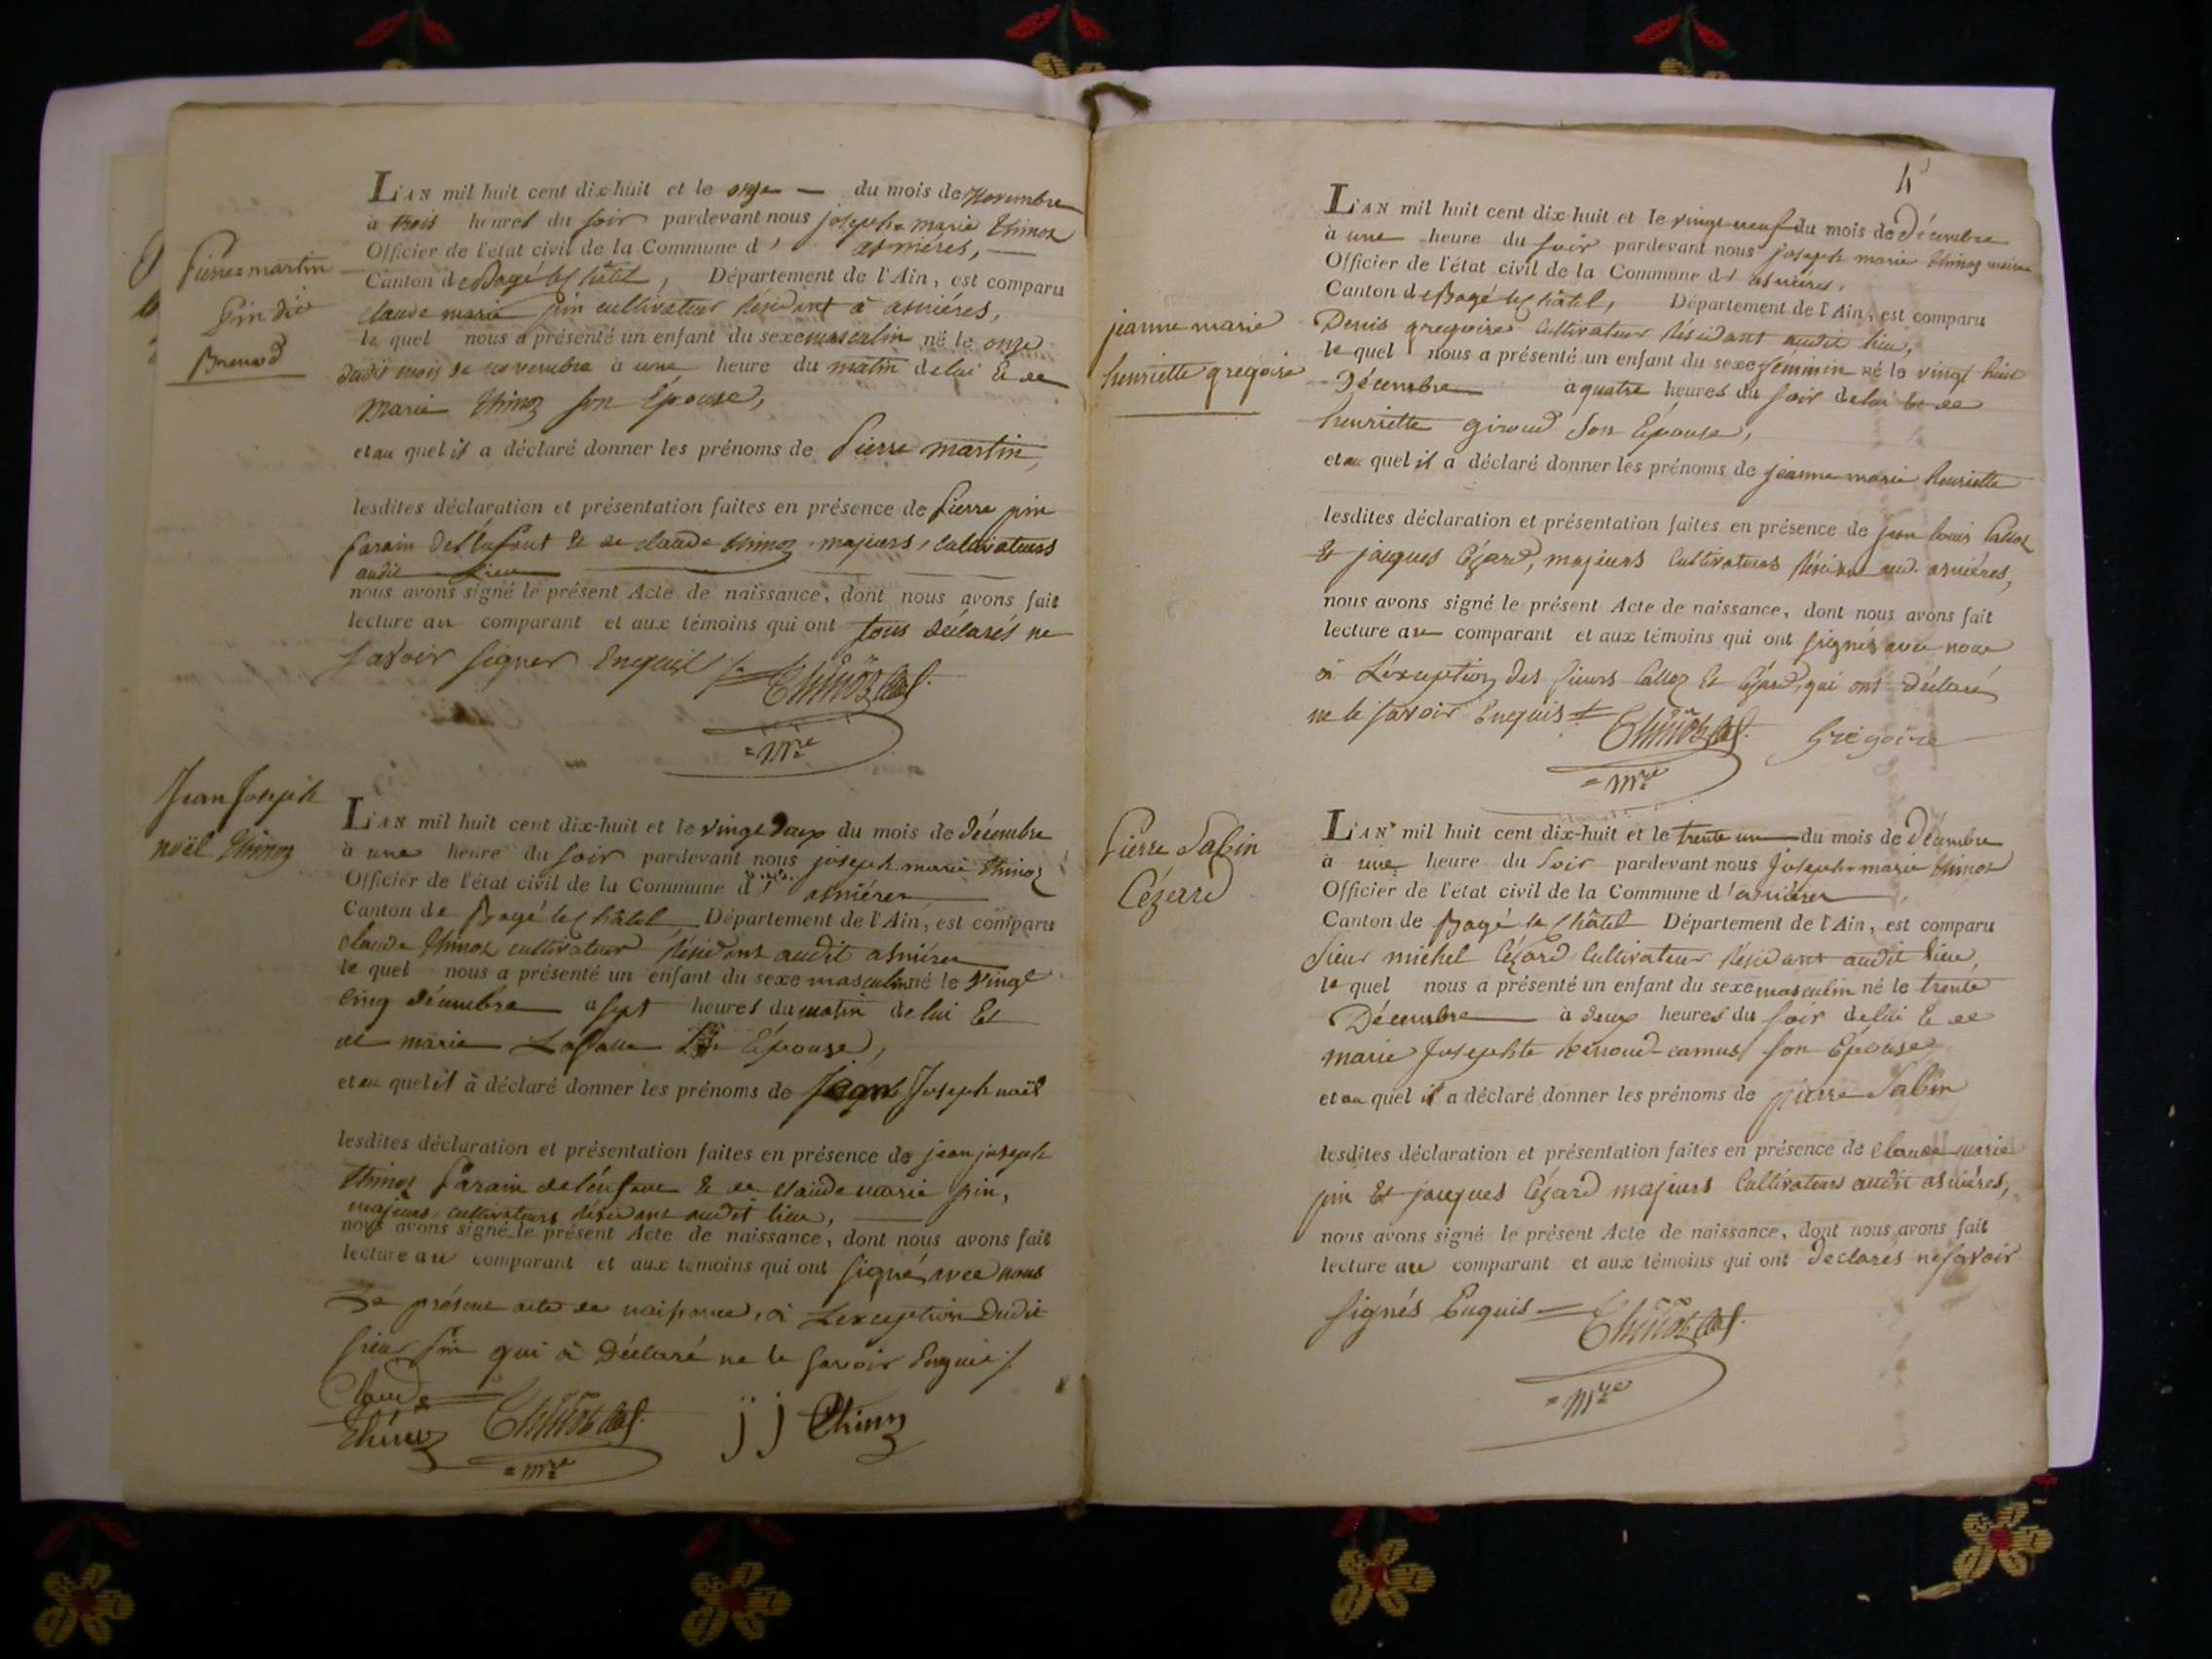 Pierre martin
Pin dit
Brunod
L'AN mil huit cent dix-huit et le onze du mois de Novembre
à trois heures du soir pardevant nous joseph marie thinoz
Officier de l'état civil de la Commune d' asniéres,
Canton de Bagé le Châtel, Département de l'Ain, est comparu
claude marie pin cultivateur résidant à asniéres,
le quel nous a présenté un enfant du sexe masculin né le onze
dudit mois de novembre à une heure du matin de lui & de
Marie thinoz son Epouse,
et au quel il a déclaré donner les prénoms de Pierre martin,
lesdites déclaration et présentation faites en présence de Pierre pin
Parain de l'enfant & de claude thinoz majeurs, cultivateurs
audit Lieu
nous avons signé le présent Acte de naissance, dont nous avons fait
lecture au comparant et aux témoins qui ont tous déclarés ne
savoir signer Enquis
Thinoz
= mre
Jean Joseph
noël thinoz
L'AN mil huit cent dix-huit et le vingt du mois de décembre
à une heure du soir pardevant nous joseph marie thinoz
Officier de l'état civil de la Commune d' asniéres
Canton de Bagé le Châtel Département de l'Ain, est comparu
claude thinoz cultivateur résidant audit asniéres
le quel nous a présenté un enfant du sexe masculin né le vingt
cinq décembre a sept heures du matin de lui Et
de marie Epouse,
et au quel il à déclaré donner les prénoms de Jean Joseph noël
lesdites déclaration et présentation faites en présence de jean joseph
thinoz Parain de l'enfant & de claude marie pin,
majeurs, cultivateurs résidant audit lieu,
nous avons signé le présent Acte de naissance, dont nous avons fait
lecture au comparant et aux témoins qui ont signé avec nous
Le présent acte de naissance, à L'exception dudit
sieur Pin qui à Déclaré ne le savoir Enquis
Claude
thinoz Thinoz j j Thinoz
= mre
4
jeanne marie
henriette gregoire
L'AN mil huit cent dix-huit et le vingt neuf du mois de Décembre
à une heure du soir pardevant nous joseph marie thinoz maire
Officier de l'état civil de la Commune d' asniéres,
Canton de Bagé le Châtel, Département de l'Ain, est comparu
Denis gregoire Cultivateur résidant audit lieu,
le quel nous a présenté un enfant du sexe féminin né le vingt huit
Décembre a quatre heures du soir de lui & de
henriette giroud son Epouse,
et au quel il a déclaré donner les prénoms de jeanne marie henriette
lesdites déclaration et présentation faites en présence de jean louis Calloz
Et jacques Cézard, majeurs Cultivateurs aud. asniéres,
nous avons signé le présent Acte de naissance, dont nous avons fait
lecture au comparant et aux témoins qui ont signés avec nous
à L'exception des sieurs Calloz & Cézard, qui ont déclaré
ne le savoir Enquis
Thinoz Gregoire
= mre
Pierre Sabin
Cézard
L'AN mil huit cent dix-huit et le trente un du mois de Décembre
à une heure du Soir pardevant nous Joseph marie thinoz
Officier de l'état civil de la Commune d'asniéres
Canton de Bagé le Châtel Département de l'Ain, est comparu
Sieur michel Cézard Cultivateur résidant audit lieu,
le quel nous a présenté un enfant du sexe masculin né le trente
Décembre à deux heures du soir de lui & de
marie Josephte renoud-camus son Epouse
et au quel il a déclaré donner les prénoms de pierre Sabin
lesdites déclaration et présentation faites en présence de Claude marie
pin Et jacques Cézard majeurs Cultivateurs audit asniéres,
nous avons signé le présent Acte de naissance, dont nous avons fait
lecture au comparant et aux témoins qui ont Declarés ne savoir
signés Enquis
Thinoz
= mre